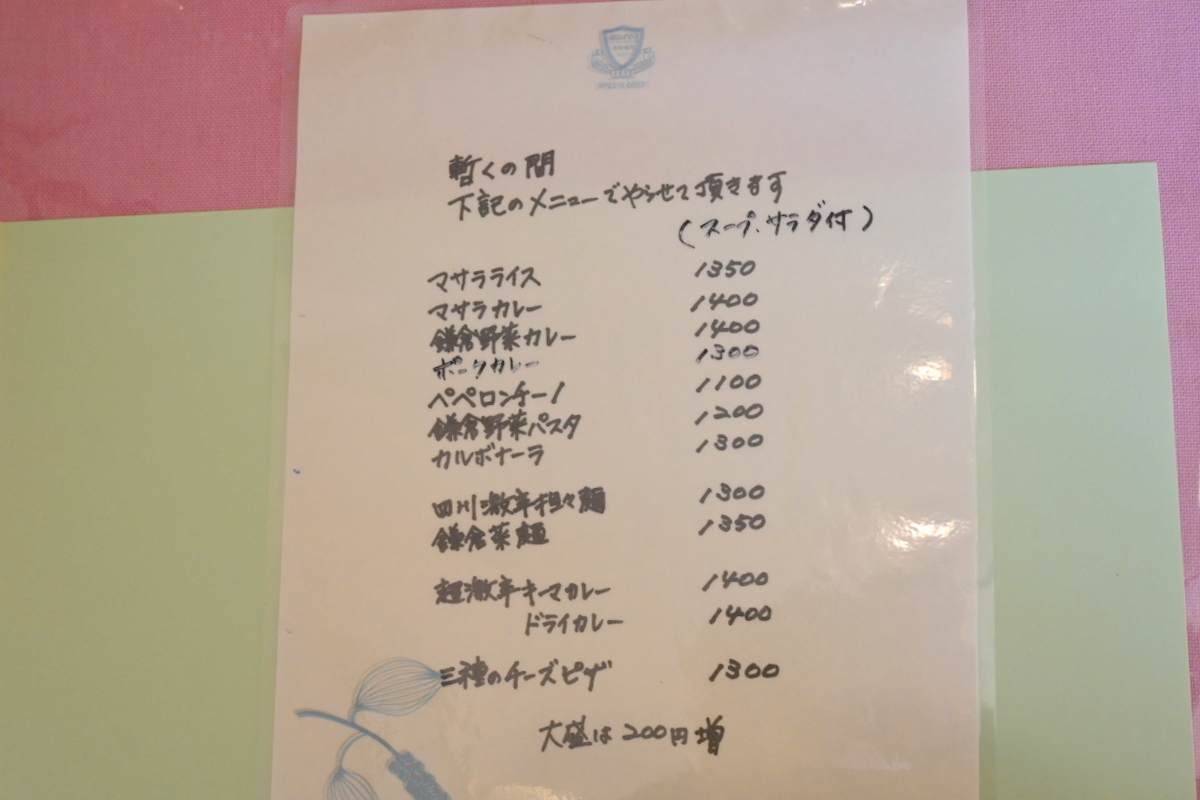 暫くの間
下記のメニューでやらせて頂きます
(スープ、サラダ付)
マサラライス 1350
マサラカレー 1400
鎌倉野菜カレー 1400
ポークカレー 1300
ペペロンチーノ 1100
鎌倉野菜パスタ 1200
カルボナーラ 1300
四川激辛担々麺 1300
鎌倉菜麺 1350
超激辛キーマカレー 1400
ドライカレー 1400
三種のチーズピザ 1300
大盛は200円増